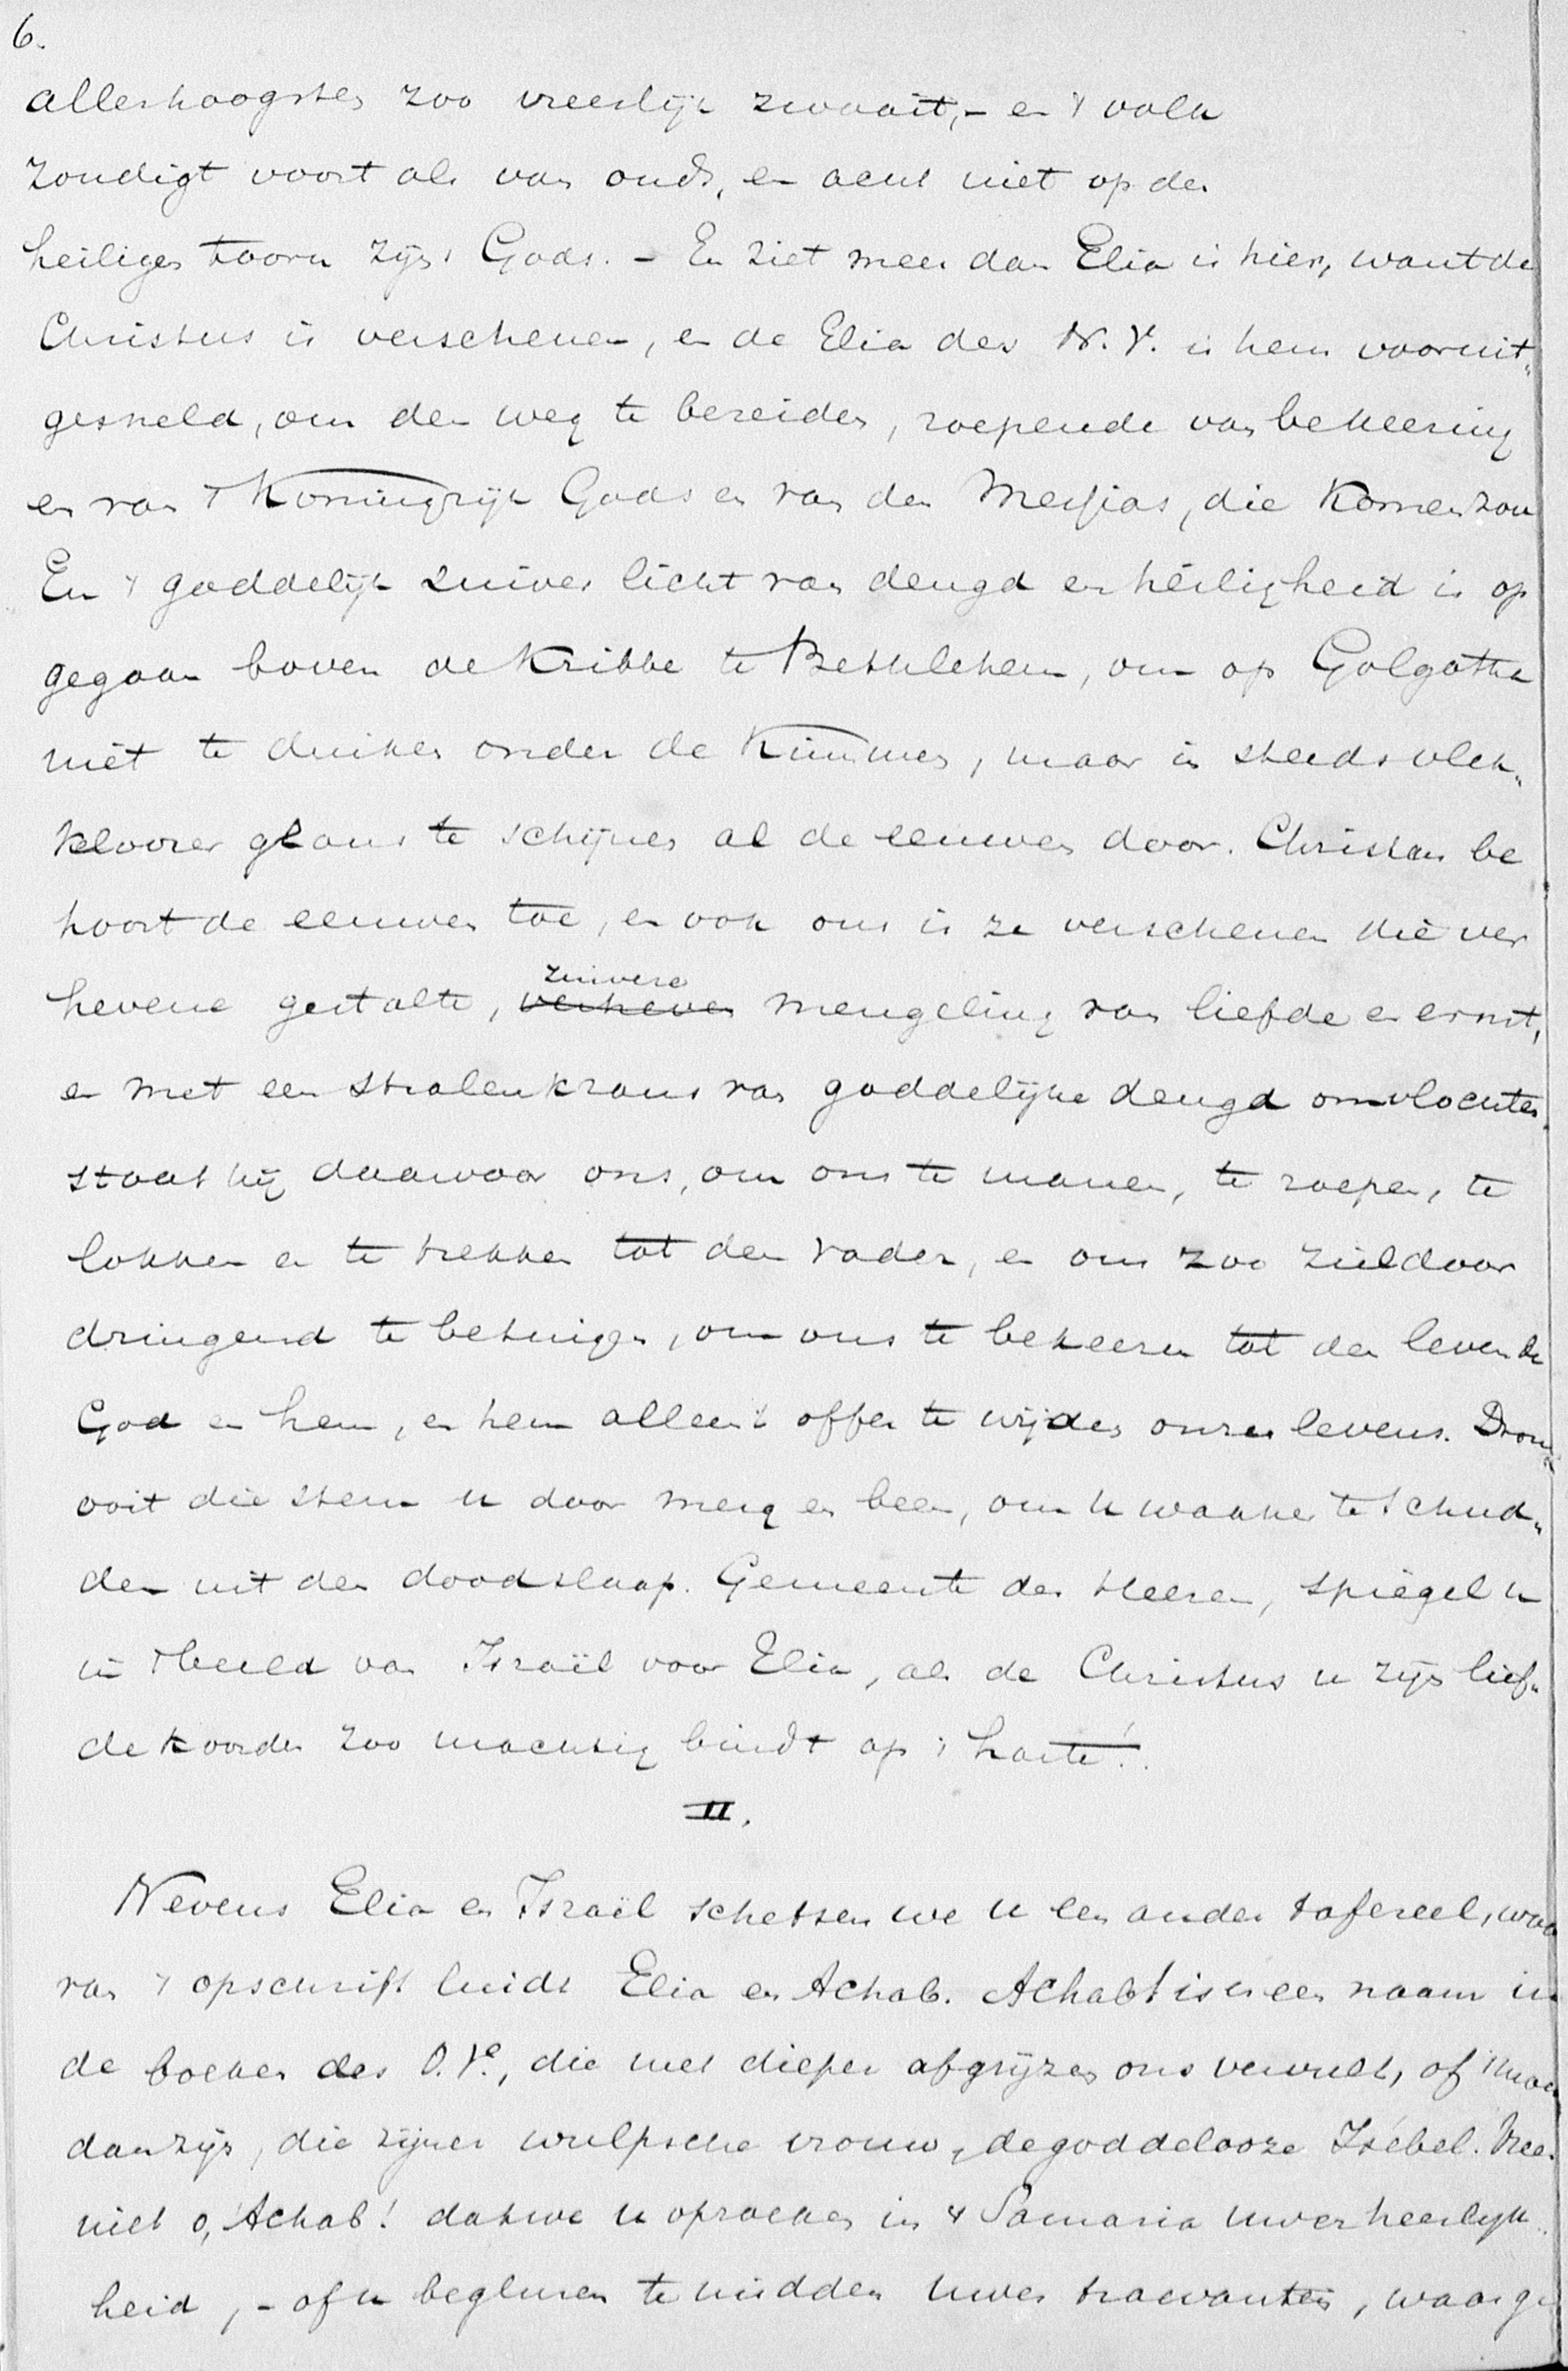 6.
allerhoogsten zoo vreeslijk zwaait, – en 't volk
zondigt voort als van ouds, en acht niet op den
heiligen toorn zijns Gods. – En ziet meer dan Elia is hier, want de
Christus is verschenen, en de Elia des N. V. is hem vooruit„
gesneld, om den weg te bereiden, roepende van bekeering
en van 't Koningrijk Gods en van den Messias, die komen zou
En 't goddelijk zuiver licht van deugd en heiligheid is op
gegaan boven de kribbe te Bethlehem, om op Golgotha
niet te duiken onder de kimmen, maar in steeds vlek„
keloozer glans te schijnen al de eeuwen door. Christus be
hoort de eeuwen toe, en ook ons is ze verschenen die ver
hevene gestalte, zuivere verheven mengeling van liefde en ernst,
en met een stralenkrans van goddelijke deugd omvlochten
staat hij daar voor ons, om ons te manen, te roepen, te
lokken en te trekken tot den Vader, en ons zoo zieldoor
dringend te betuigen, om ons te bekeeren tot den levende
God en hem, en hem alleen 't offer te wijden onzes levens. Drong
ooit die stem u door merg en been, om u wakker te schud„
den uit den doodslaap. Gemeente des Heeren, spiegel u
in 't beeld van Israël voor Elia, als de Christus u zijn lief„
dekoorden zoo machtig bindt op 't harte!.
II.
Nevens Elia en Israël schetsen we u een ander tafereel, waar
van 't opschrift luidt Elia en Achab. Achab! is er een naam in
de boeken des O. Vs., die met dieper afgrijzen ons vervult, of 't moe
dan zijn, die zijner wulpsche vrouw, de goddelooze Isébel. Vrees
niet o, Achab! dat we u opzoeken in 't Samaria uwer heerlijk„
heid, – of u begluren te midden uwer trawanten, waar ge